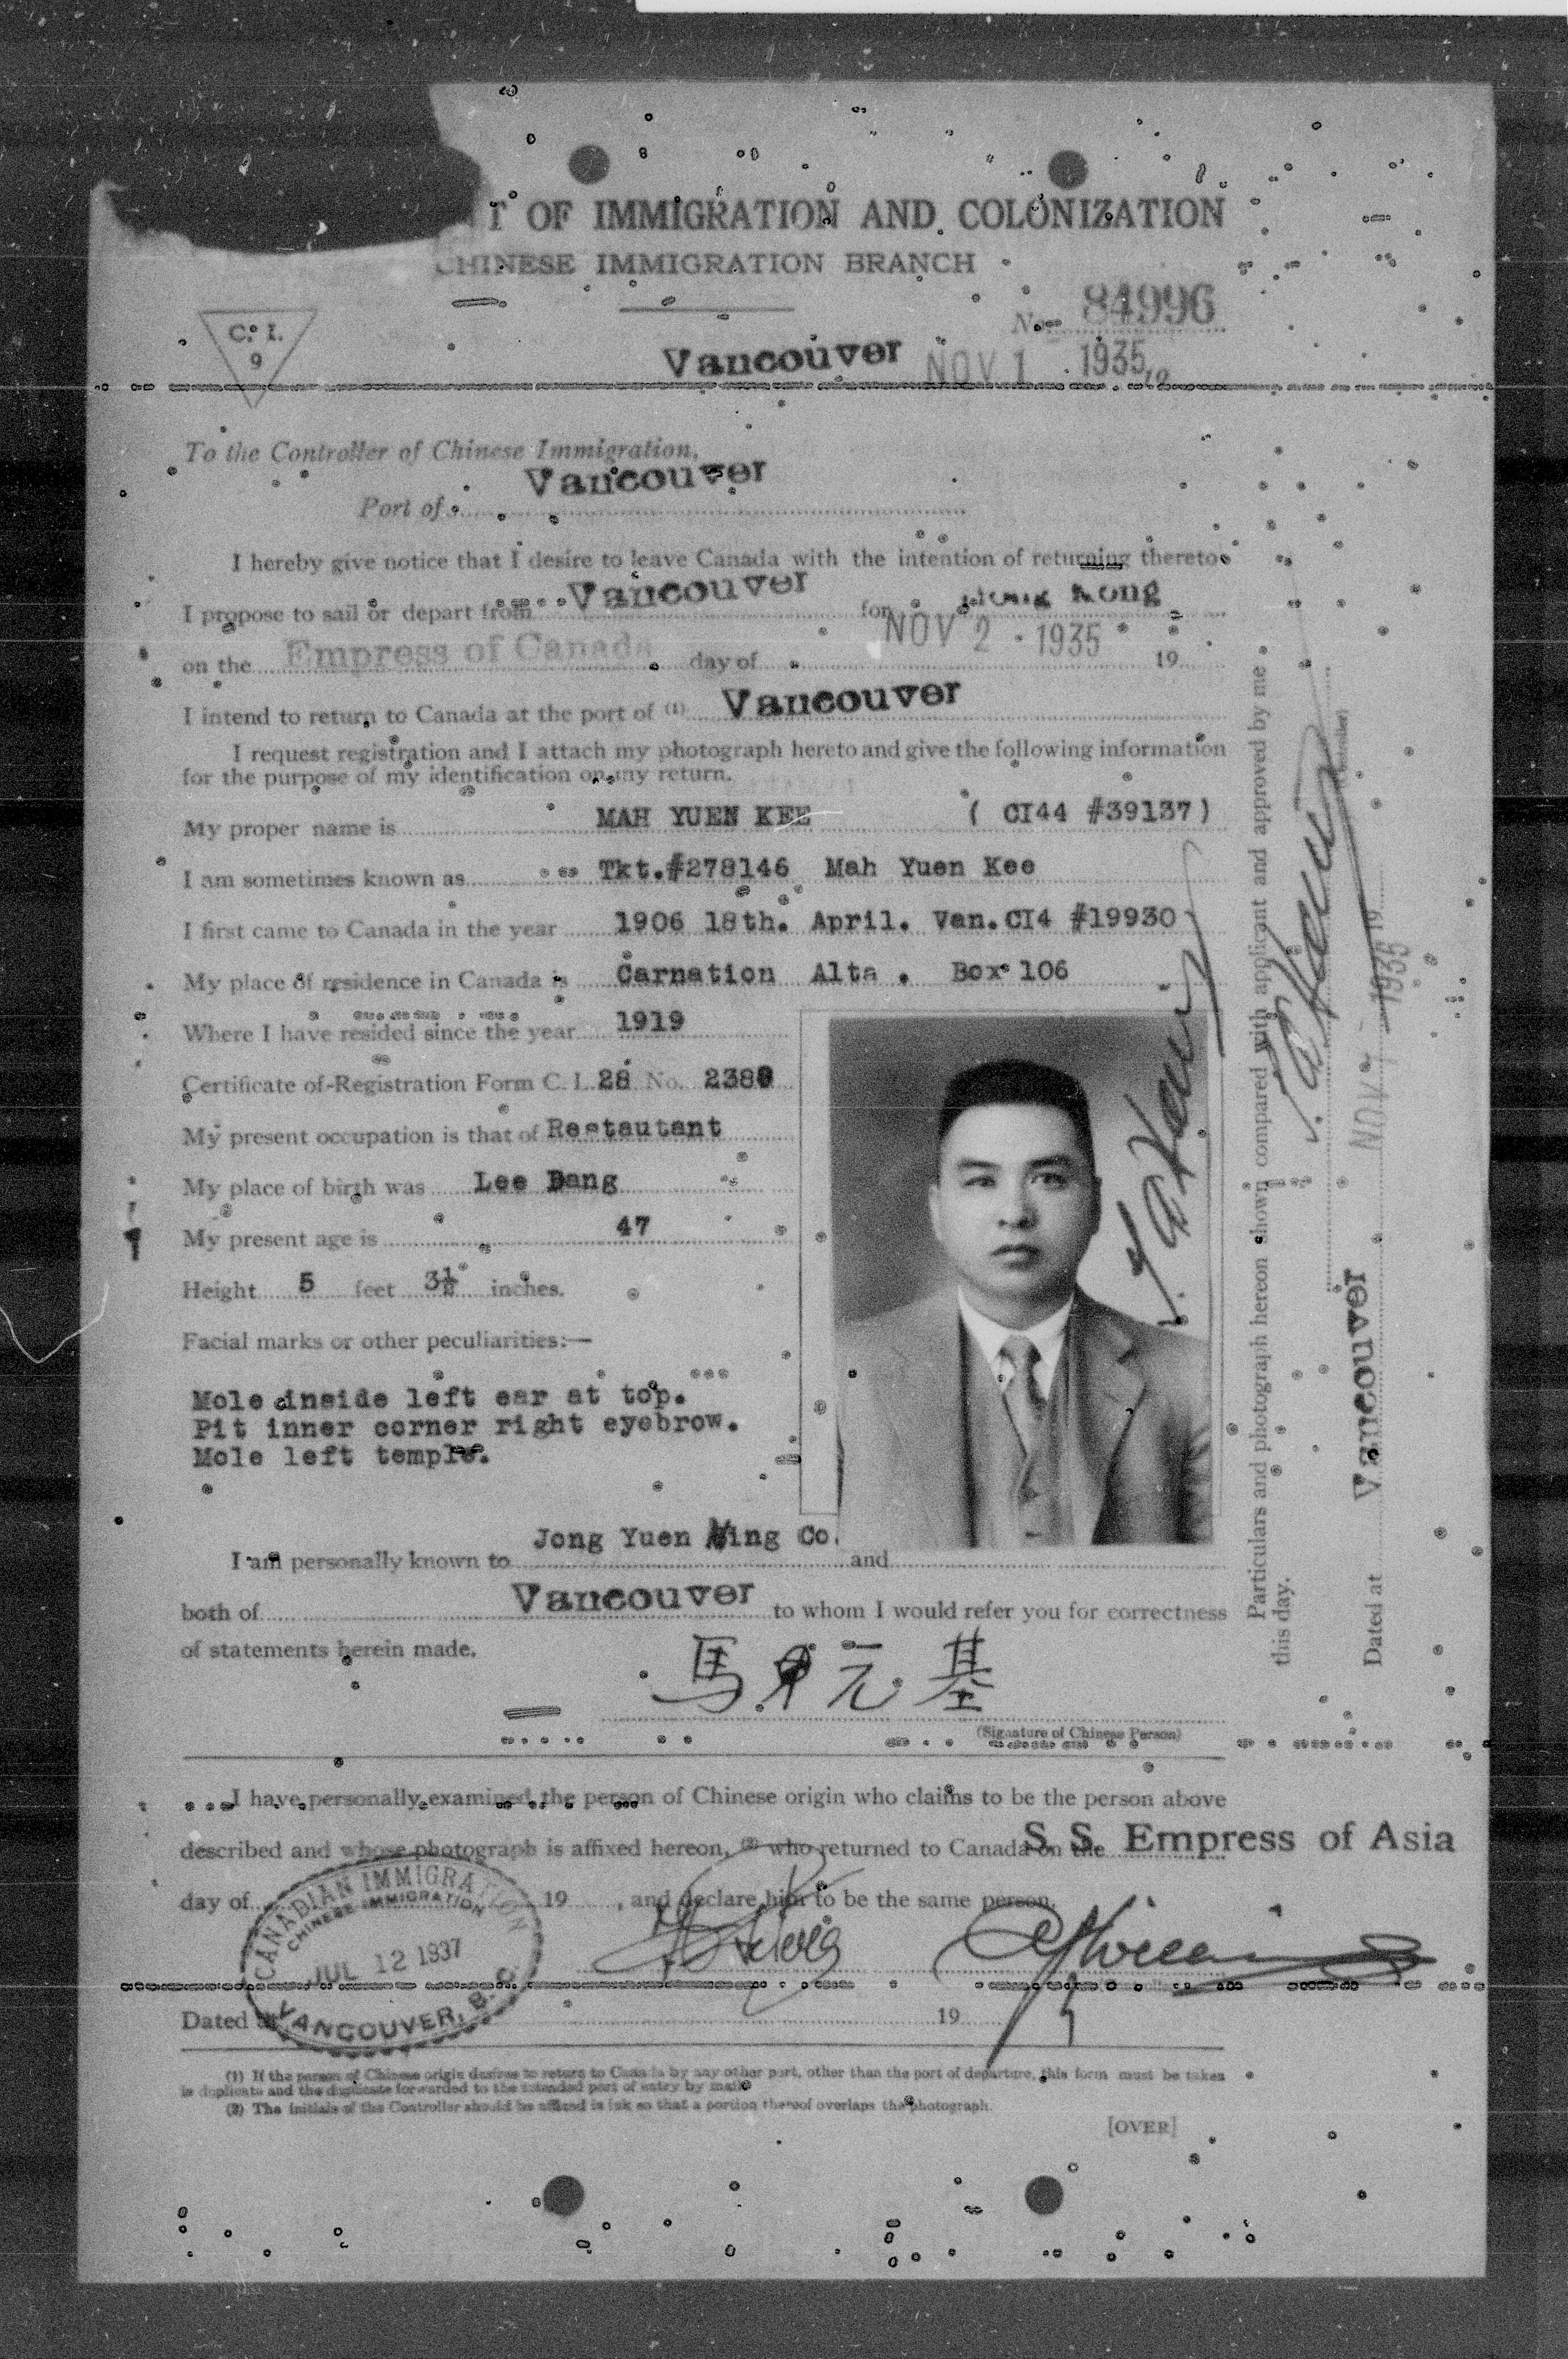 T OF IMMIGRATION AND COLONIZATION
CHINESE IMMIGRATION BRANCH
C. I.
9
No. 84996
Vancouver NOV 1 1935 19
To the Controller of Chinese Immigration,
Port of Vancouver
I hereby give notice that I desire to leave Canada with the intention of returning thereto.
I propose to sail or depart from Vancouver for Hong Kong
on the Empress of Canada day of NOV 2 1935 19
I intend to return to Canada at the port of (1) Vancouver
I request registration and I attach my photograph hereto and give the following information
for the purpose of my identification on my return.
My proper name is MAH YUEN KEE ( CI44 #39137)
I am sometimes known as Tkt.#278146 Mah Yuen Kee
I first came to Canada in the year 1906 18th. April. Van. CI4 #19930
My place of residence in Canada is Carnation Alta . Box 106
Where I have resided since the year 1919
Certificate of Registration Form C. I. 28 No. 2380
My present occupation is that of Restautant
My place of birth was Lee Bang
My present age is 47
Height 5 feet 3½ inches.
Facial marks or other peculiarities:—
Mole inside left ear at top.
Pit inner corner right eyebrow.
Mole left temple.
I am personally known to Jong Yuen Wing Co. and
both of Vancouver to whom I would refer you for correctness
of statements herein made.
馬元基
(Signature of Chinese Person)
I have personally examined the person of Chinese origin who claims to be the person above
described and whose photograph is affixed hereon, (2) who returned to Canada on the S. S. Empress of Asia
day of 19 , and declare him to be the same person.
CANADIAN IMMIGRATION
CHINESE IMMIGRATION
JUL 12 1937
VANCOUVER, B. C.
Dated at 19
(1) If the person of Chinese origin desires to return to Canada by any other port, other than the port of departure, this form must be taken
in duplicate and the duplicate forwarded to the intended port of entry by mail.
(2) The initials of the Controller should be affixed in ink so that a portion thereof overlaps the photograph.
[OVER]
Particulars and photograph hereon shown compared with applicant and approved by me
this day.
(Controller)
Dated at Vancouver NOV 1 1935 19